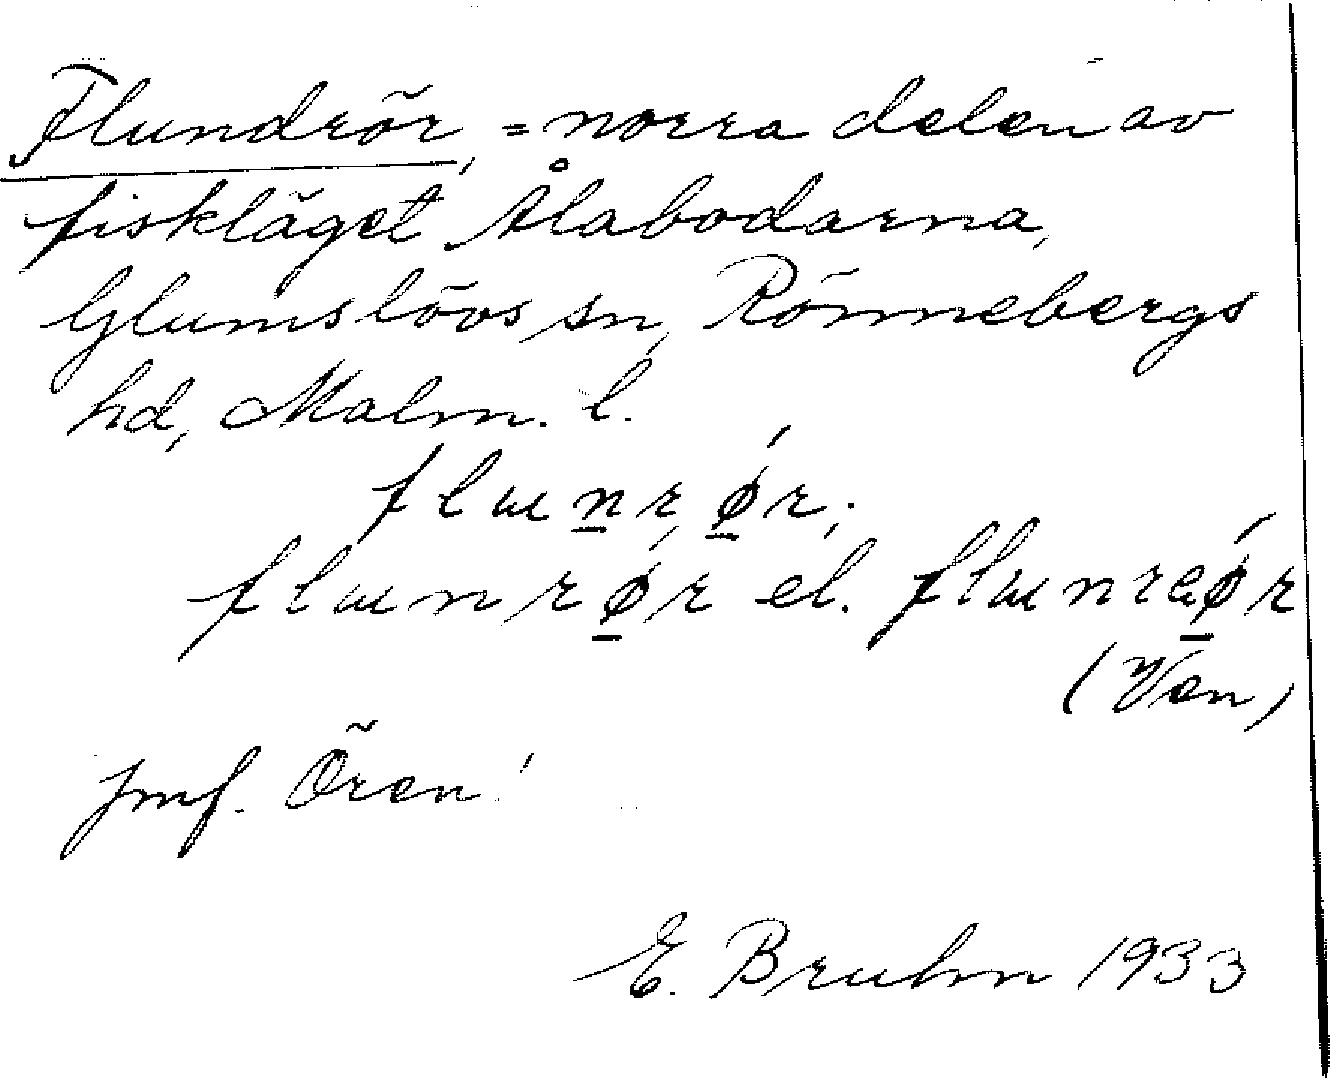 Flundrör, = norra delen av
fiskläget Ålabodarna,
Glumslövs sn, Rönnebergs
hd, Malm. l.
flɯn̲rǿ̲r,.
flɯnrǿ̲r el. flɯnreǿ̲r
(Ven)
Jmf. Ören!
E. Bruhn 1933